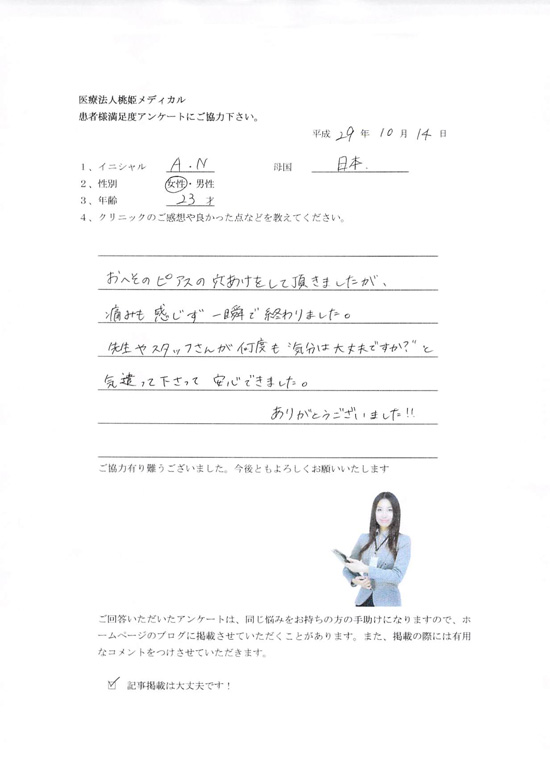 医療法人桃姫メディカル
患者様満足度アンケートにご協力下さい。
平成 29 年 10 月 14 日
1、イニシャル A.N 母国 日本.
2、性別 女性・男性
3、年齢 23才
4、クリニックのご感想や良かった点などを教えてください。
おへそのピアスの穴あけをして頂きましたが、
痛みも感じず一瞬で終わりました。
先生やスタッフさんが何度も"気分は大丈夫ですか?"と
気遣って下さって安心できました。
ありがとうございました!!
ご協力有り難うございました。今後ともよろしくお願いいたします
ご回答いただいたアンケートは、同じ悩みをお持ちの方の手助けになりますので、ホ
ームページのブログに掲載させていただくことがあります。また、掲載の際には有用
なコメントをつけさせていただきます。
☑ 記事掲載は大丈夫です！